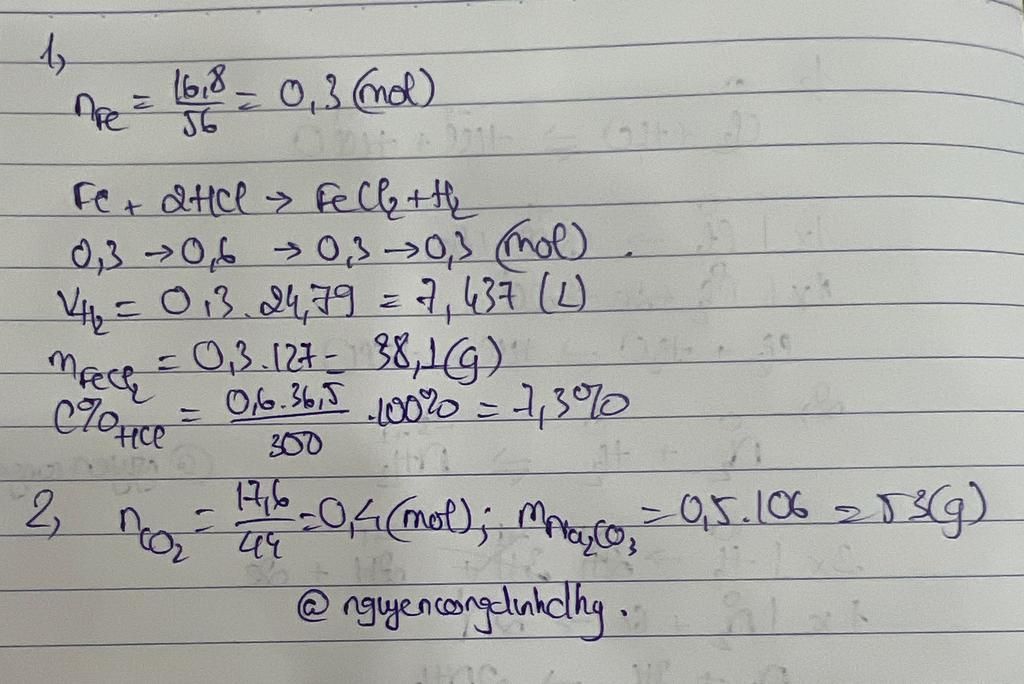 1,
nFe = 16,8/56 = 0,3 (mol)
Fe + 2HCl → FeCl2 + H2
0,3 → 0,6 → 0,3 → 0,3 (mol).
VH2 = 0,3.24,79 = 7,437 (L)
mFeCl2 = 0,3.127 = 38,1(g)
C%HCl = 0,6.36,5/300 .100% = 7,3%
2, nCO2 = 17,6/44 = 0,4 (mol); mNa2CO3 = 0,5.106 = 53(g)